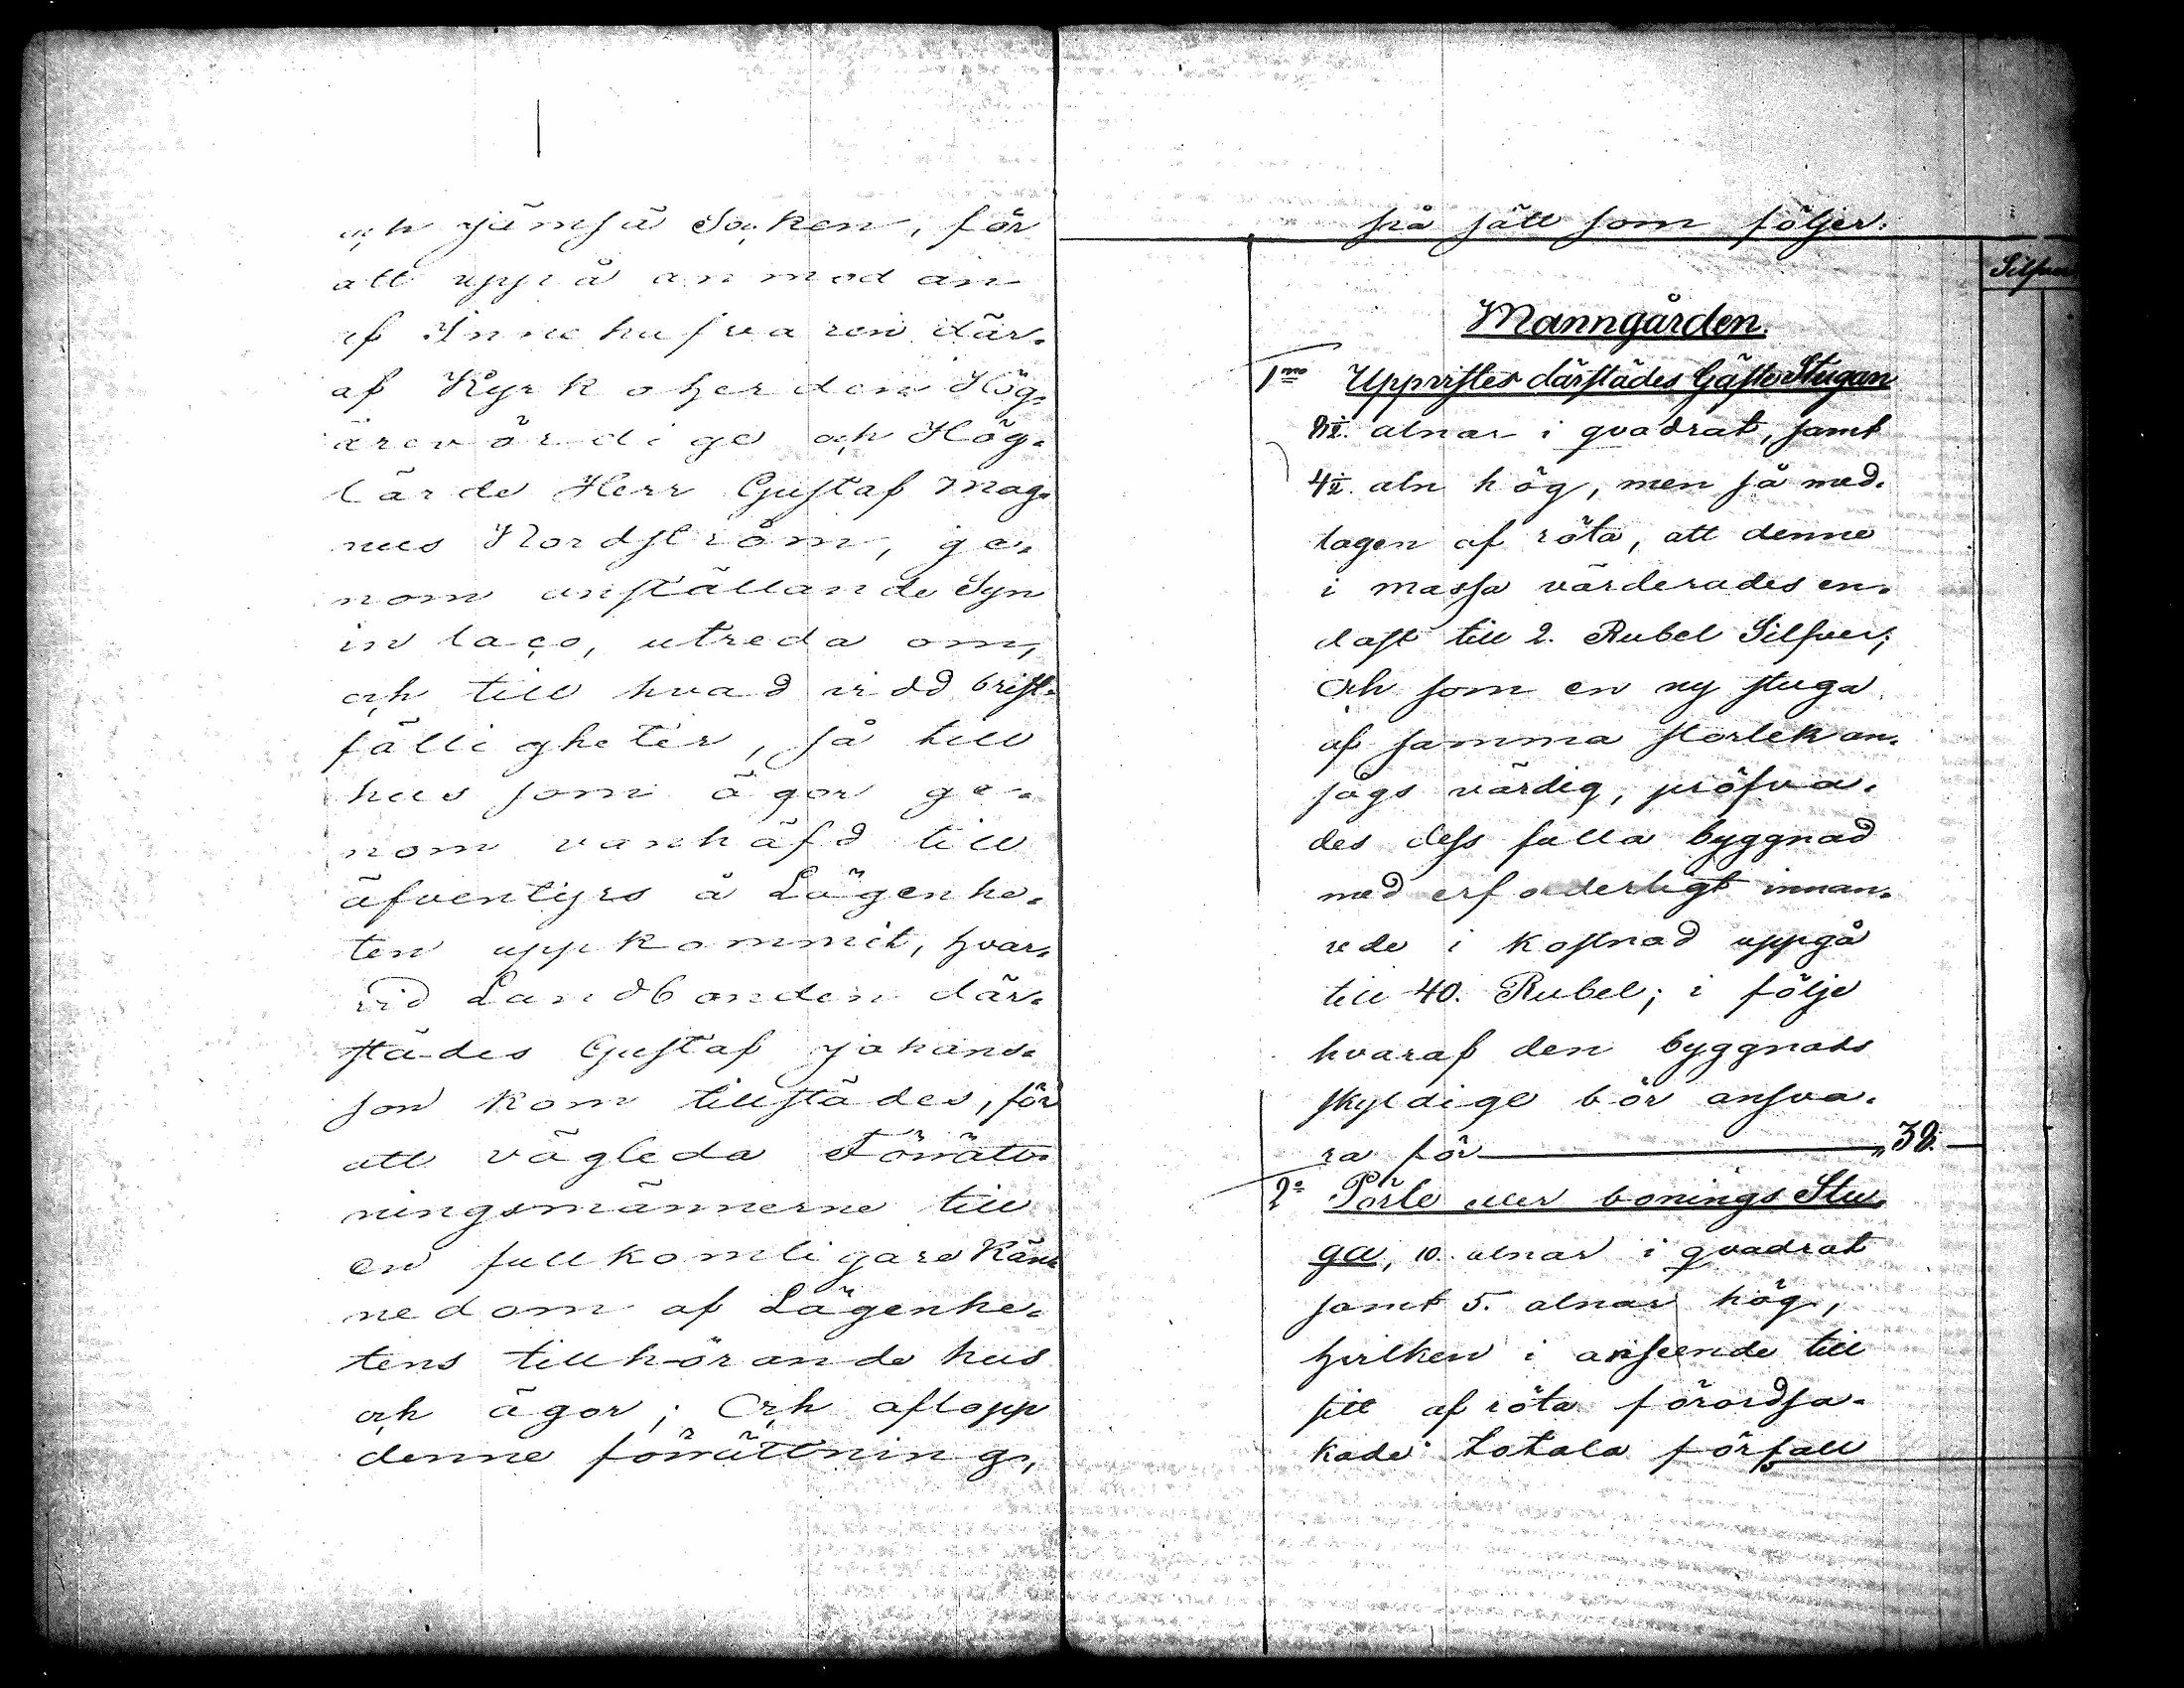 och Jämsä Socken, för
att uppå anmodan
af Innehafvaren där-
af Kyrkoherden Hög-
ärevördige och Hög-
lärde Herr Gustaf Mag-
nus Nordström, ge-
nom anställande Syn
in loco, utreda om,
och till hvad vidd brist-
fälligheter, så till
hus som ägor ge-
nom vanhäfd till
äfventyrs å Lägenhe-
ten uppkommit, hvar-
vid Landbonden där-
städes Gustaf Johans-
son kom tillstädes, för
att vägleda Förrätt-
ningsmännerne till
en fullkomligare Kän-
nedom af Lägenhe-
tens tillhörande hus
och ägor; Och aflopp
denne förrättning,
på sätt som följer:
Silfver
Manngården.
1mo Uppvistes därstädes GästeStugan
8½. alnar i qvadrat, samt
4½. aln hög, men så med-
tagen af röta, att denne
i massa värderades en-
dast till 2. Rubel Silfver;
Och som en ny stuga
af samma storlek an-
sågs värdig, pröfva-
des dess fulla byggnad
med erforderligt innan-
rede i kostnad uppgå
till 40. Rubel; i följe
hvaraf den byggnads
skyldige bör ansva-
ra för „ 38. —
2o Pörte eller bonings Stu-
ga, 10. alnar i qvadrat
samt 5. alnar hög,
hvilken i anseende till
sitt af röta förordsa-
kade totala förfall